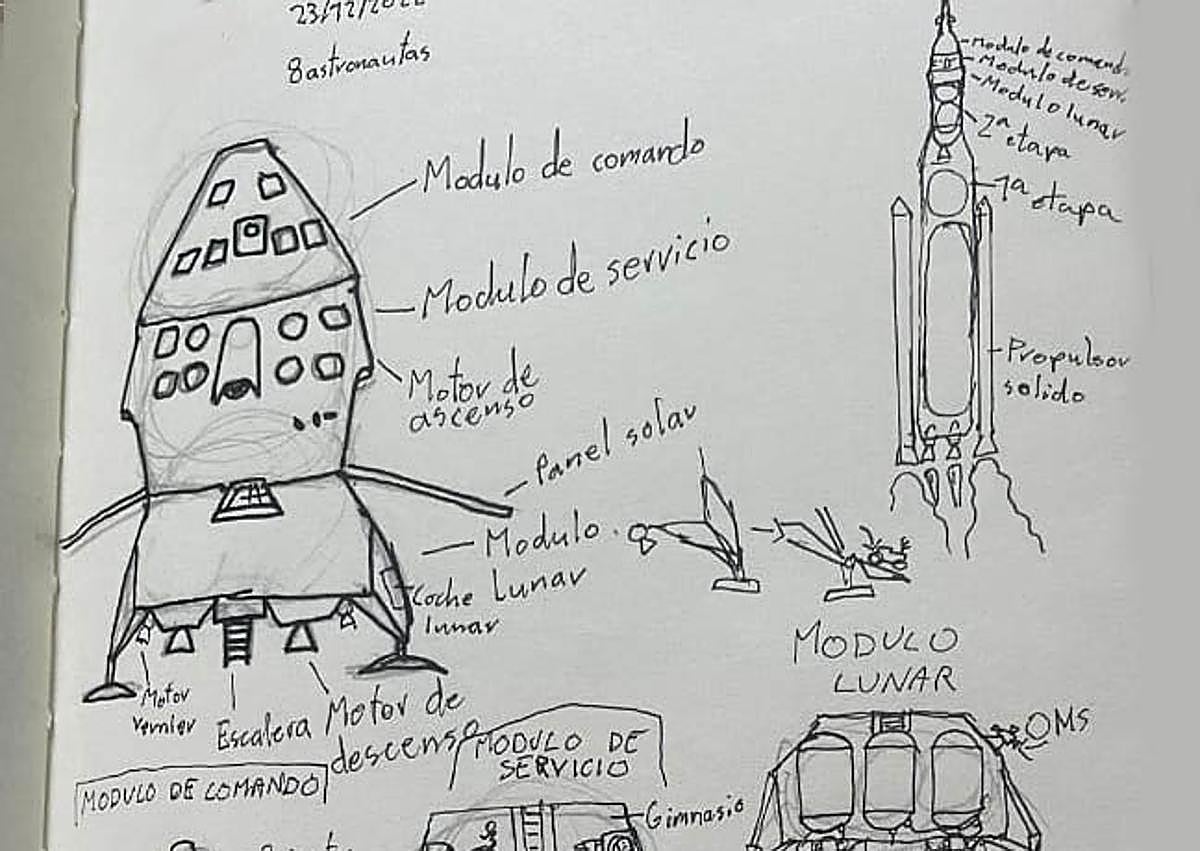 8 astronautas
Modulo de comando
Modulo de servicio
Motor de
ascenso
Panel solar
Modulo
Lunar
Coche
lunar
Motor
Vernier
Escalera
Motor de
descenso
Modulo de
Modulo de
Modulo lunar
2ª etapa
1ª etapa
Propulsor
solido
MODULO DE COMANDO
MODULO DE
SERVICIO
Gimnasio
MODULO
LUNAR
OMS